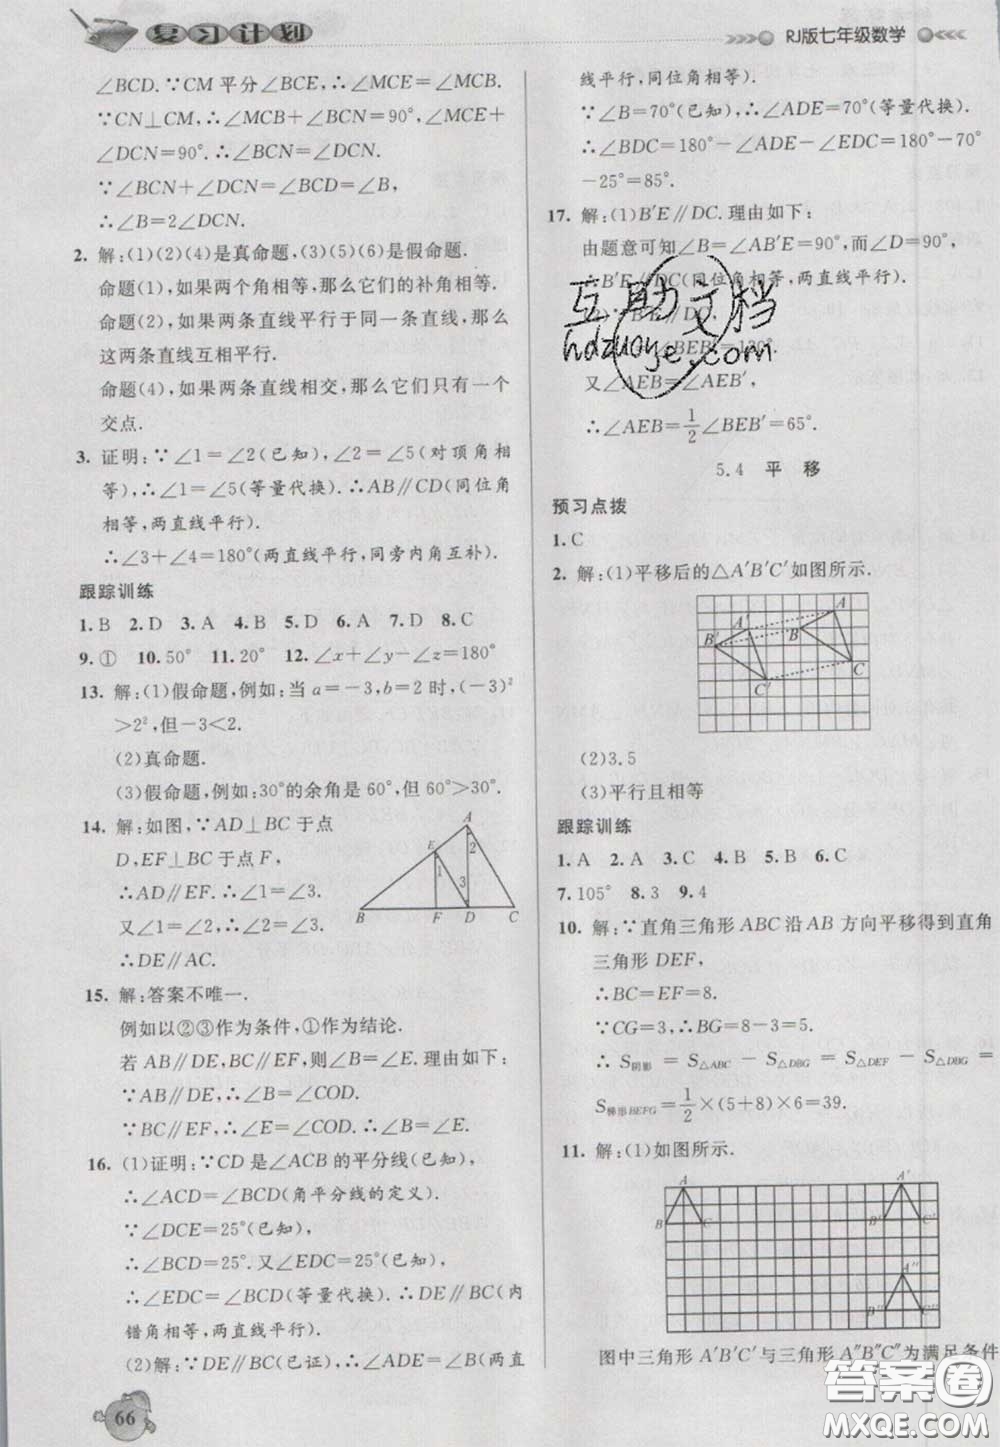 复习计划
RJ版七年级数学
∠BCD.∵CM平分∠BCD,∴∠MCE=∠MCB.
∵CN⊥CM,∴∠MCB+∠BCN=90°,∠MCE+
∠DCN=90°.∴∠BCN=∠DCN.
∵∠BCN+∠DCN=∠BCD=∠B,
∴∠B=2∠DCN.
2. 解:(1)(2)(4)是真命题,(3)(5)(6)是假命题.
命题(1),如果两个角相等,那么它们的补角相等.
命题(2),如果两条直线平行于同一条直线,那么
这两条直线互相平行.
命题(4),如果两条直线相交,那么它们只有一个
交点.
3. 证明:∵∠1=∠2(已知),∠2=∠5(对顶角相
等),∴∠1=∠5(等量代换).∴AB∥CD(同位角
相等,两直线平行).
∴∠3+∠4=180°(两直线平行,同旁内角互补).
跟踪训练
1. B 2. D 3. A 4. B 5. D 6. A 7. D 8. C
9. ① 10. 50° 11. 20° 12. ∠x+∠y-∠z=180°
13. 解:(1)假命题,例如:当a=-3,b=2时,(-3)²
>2²,但-3<2.
(2)真命题.
(3)假命题,例如:30°的余角是60°,但60°>30°.
14. 解:如图,∵AD⊥BC于点
D,EF⊥BC于点F,
∴AD∥EF.∴∠1=∠3.
又∠1=∠2,∴∠2=∠3.
∴DE∥AC.
A
E
2
1
3
B
F
D
C
15. 解:答案不唯一.
例如以②③作为条件,①作为结论.
若AB∥DE,BC∥EF,则∠B=∠E.理由如下:
∵AB∥DE,∴∠B=∠COD.
∵BC∥EF,∴∠E=∠COD.∴∠B=∠E.
16. (1)证明:∵CD是∠ACB的平分线(已知),
∴∠ACD=∠BCD(角平分线的定义).
∵∠DCE=25°(已知),
∴∠BCD=25°.又∠EDC=25°(已知),
∴∠EDC=∠BCD(等量代换).∴DE∥BC(内
错角相等,两直线平行).
(2)解:∵DE∥BC(已证),∴∠ADE=∠B(两直
66
线平行,同位角相等).
∵∠B=70°(已知),∴∠ADE=70°(等量代换).
∴∠BDC=180°-∠ADE-∠EDC=180°-70°
-25°=85°.
17. 解:(1)B′E∥DC.理由如下:
由题意可知∠B=∠AB′E=90°,而∠D=90°,
∴B′E∥DC(同位角相等,两直线平行).
互助文档
hdzuoye.com
又∠AEB=∠AEB′,
∴∠AEB=1/2∠BEB′=65°.
5.4 平 移
预习点拨
1. C
2. 解:(1)平移后的△A′B′C′如图所示.
A′
A
B′
B
C′
C
(2)3.5
(3)平行且相等
跟踪训练
1. A 2. A 3. C 4. B 5. B 6. C
7. 105° 8. 3 9. 4
10. 解:∵直角三角形ABC沿AB方向平移得到直角
三角形DEF,
∴BC=EF=8.
∵CG=3,∴BG=8-3=5.
∴S阴影=S△ABC-S△DBG=S△DEF-S△DBG=
S梯形BEFG=1/2×(5+8)×6=39.
11. 解:(1)如图所示.
A
B
C
A′
B′
C′
A″
B″
C″
图中三角形A′B′C′与三角形A″B″C″为满足条件
答案圈
MXQE.COM